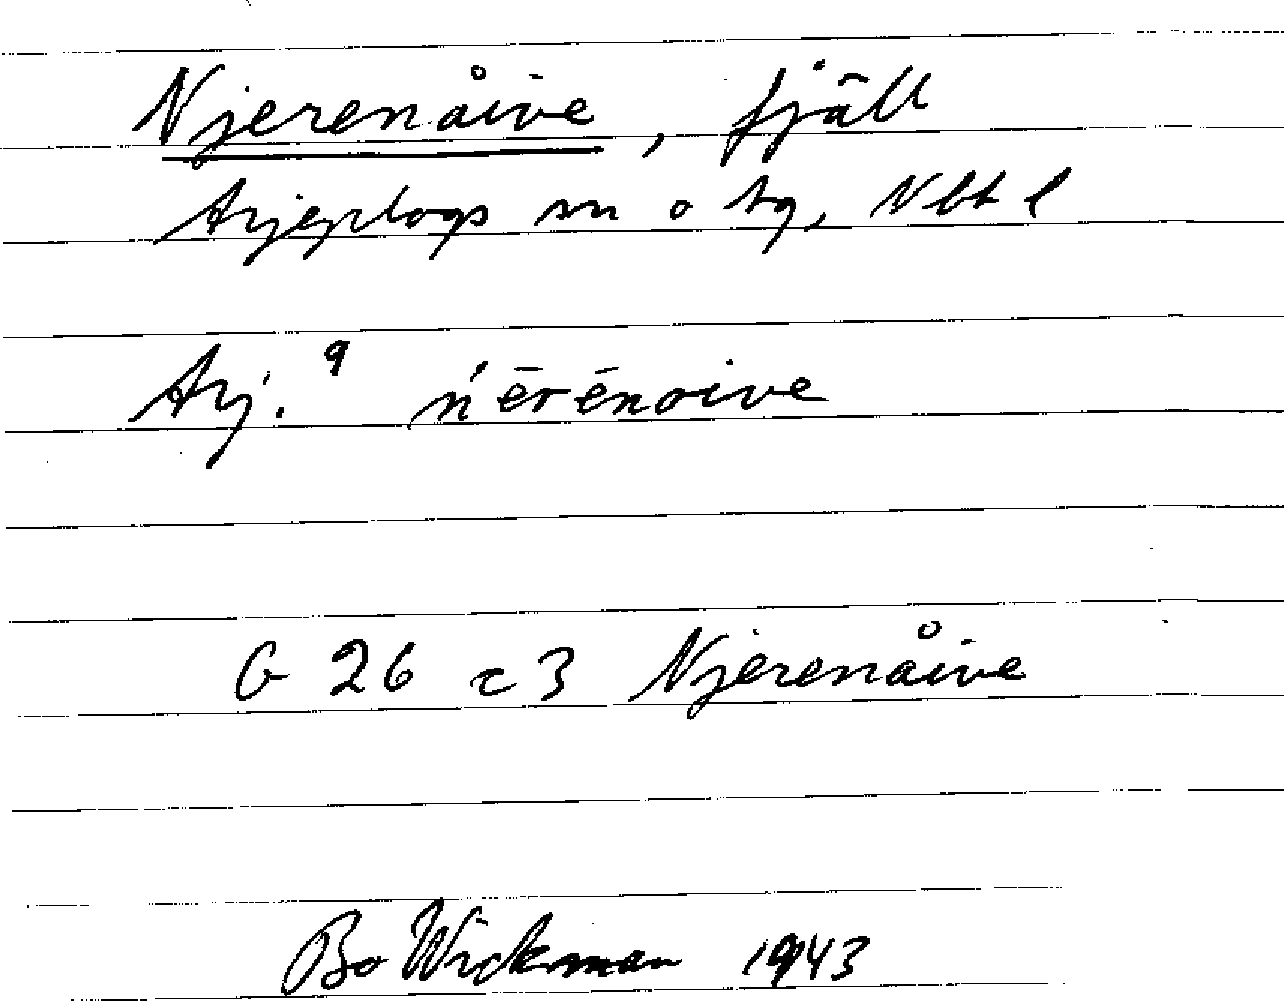 Njerenåive, fjäll
Arjeplogs sn o tg, Nbt l
Arj. 9 ńērēnoive
G 26 c 3 Njerenåive
Bo Wickman 1943